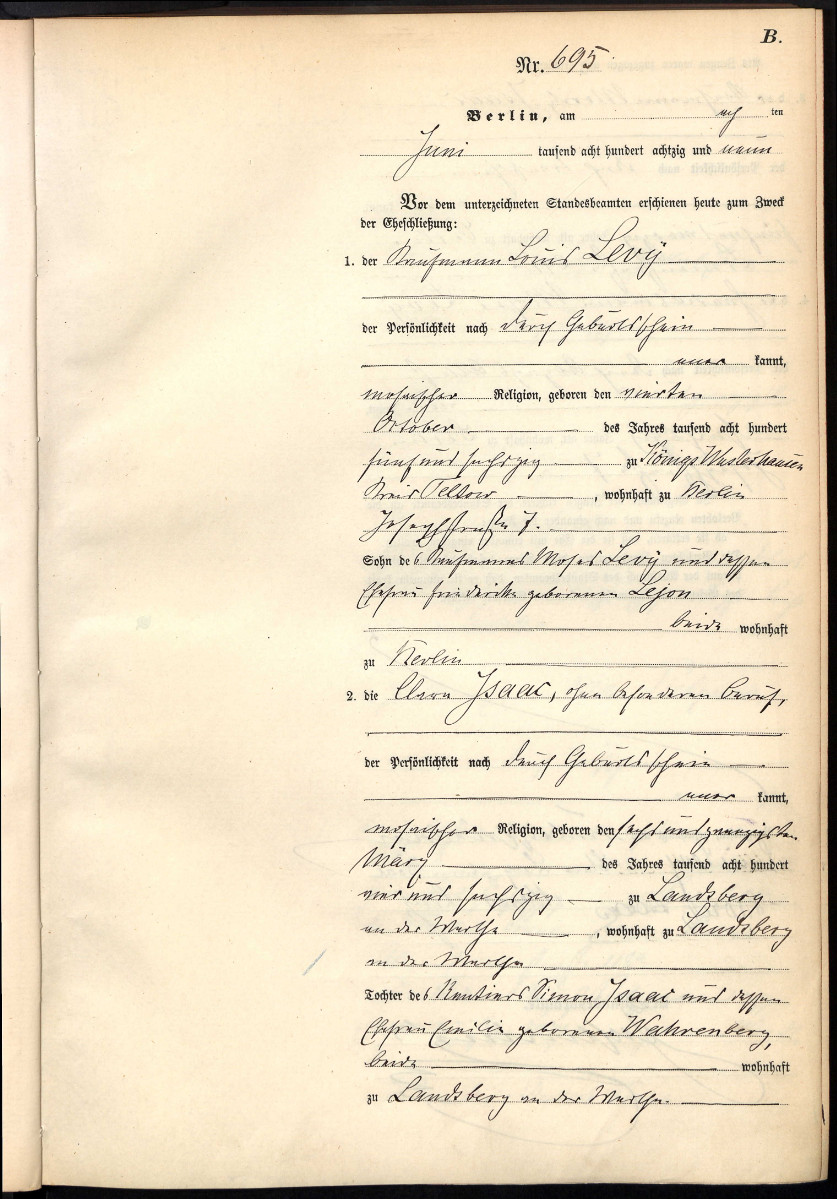 B.
Nr. 695
Berlin, am acht ten
Juni tausend acht hundert achtzig und neun
Vor dem unterzeichneten Standesbeamten erschienen heute zum Zweck
der Eheschließung:
1. der Kaufmann Louis Levÿ
der Persönlichkeit nach durch Geburtsschein
aner kannt,
mosaischer Religion, geboren den vierten
October des Jahres tausend acht hundert
fünf und sechszig zu Königs Wusterhausen
Kreis Teltow, wohnhaft zu Berlin
Josephstraße 7.
Sohn des Kaufmanns Moses Levÿ und dessen
Ehefrau Friederike geborenen Lejon
beide wohnhaft
zu Berlin
2. die Clara Isaac, ohne besonderen Beruf,
der Persönlichkeit nach durch Geburtsschein
aner kannt,
mosaischer Religion, geboren den sechs und zwanzigsten
März des Jahres tausend acht hundert
vier und sechszig zu Landsberg
an der Warthe, wohnhaft zu Landsberg
an der Warthe
Tochter des Rentiers Simon Isaac und dessen
Ehefrau Emilie geborenen Wahrenberg,
beide wohnhaft
zu Landsberg an der Warthe.